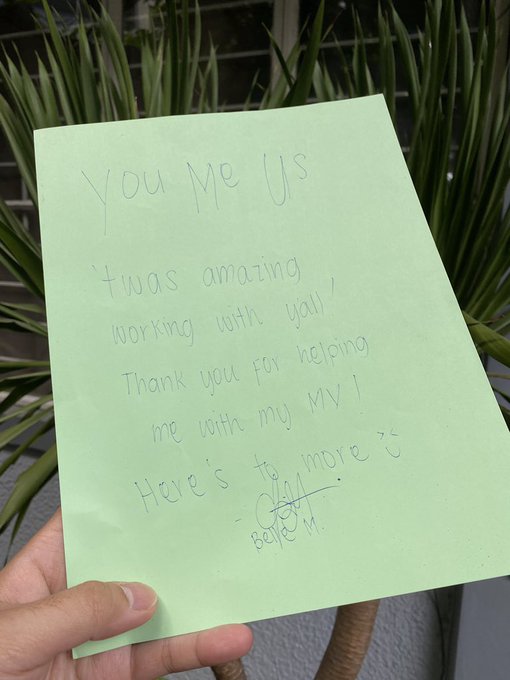 You Me Us
'twas amazing
working with yall!
Thank you for helping
me with my MV!
Here's to more
-
Belle M.